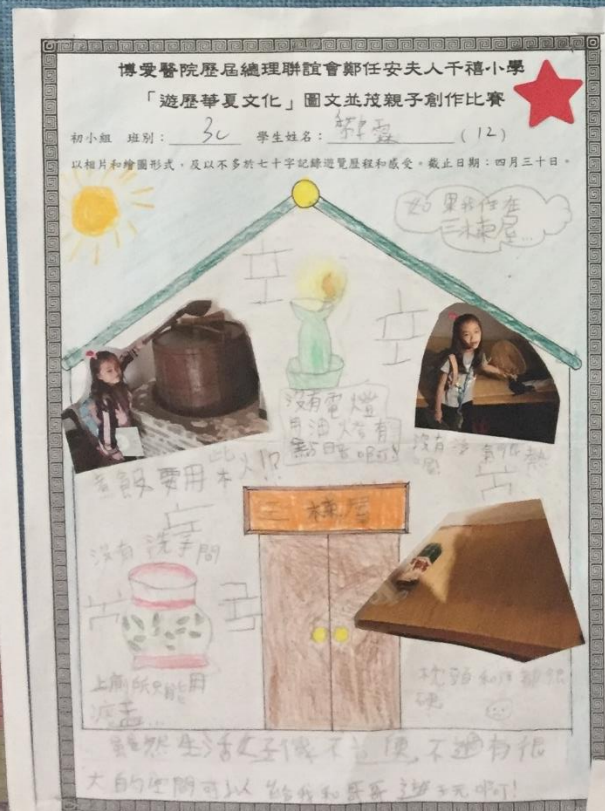 博愛醫院歷屆總理聯誼會鄭任安夫人千禧小學
「遊歷華夏文化」圖文並茂親子創作比賽
初小組 班別：3C 學生姓名： （12）
以相片和繪圖形式，及以不多於七十字記錄遊覽歷程和感受。截止日期：四月三十日。
如果我住在
三棟屋...
沒有電燈
用油燈有
點日 呢!
沒有
煮飯要用柴火!?
三棟屋
沒有洗手間
上廁所只能用
枕頭和床都很
硬
雖然生活好像不方便，不過有很
大的空間可以給我和哥哥遊玩啊!